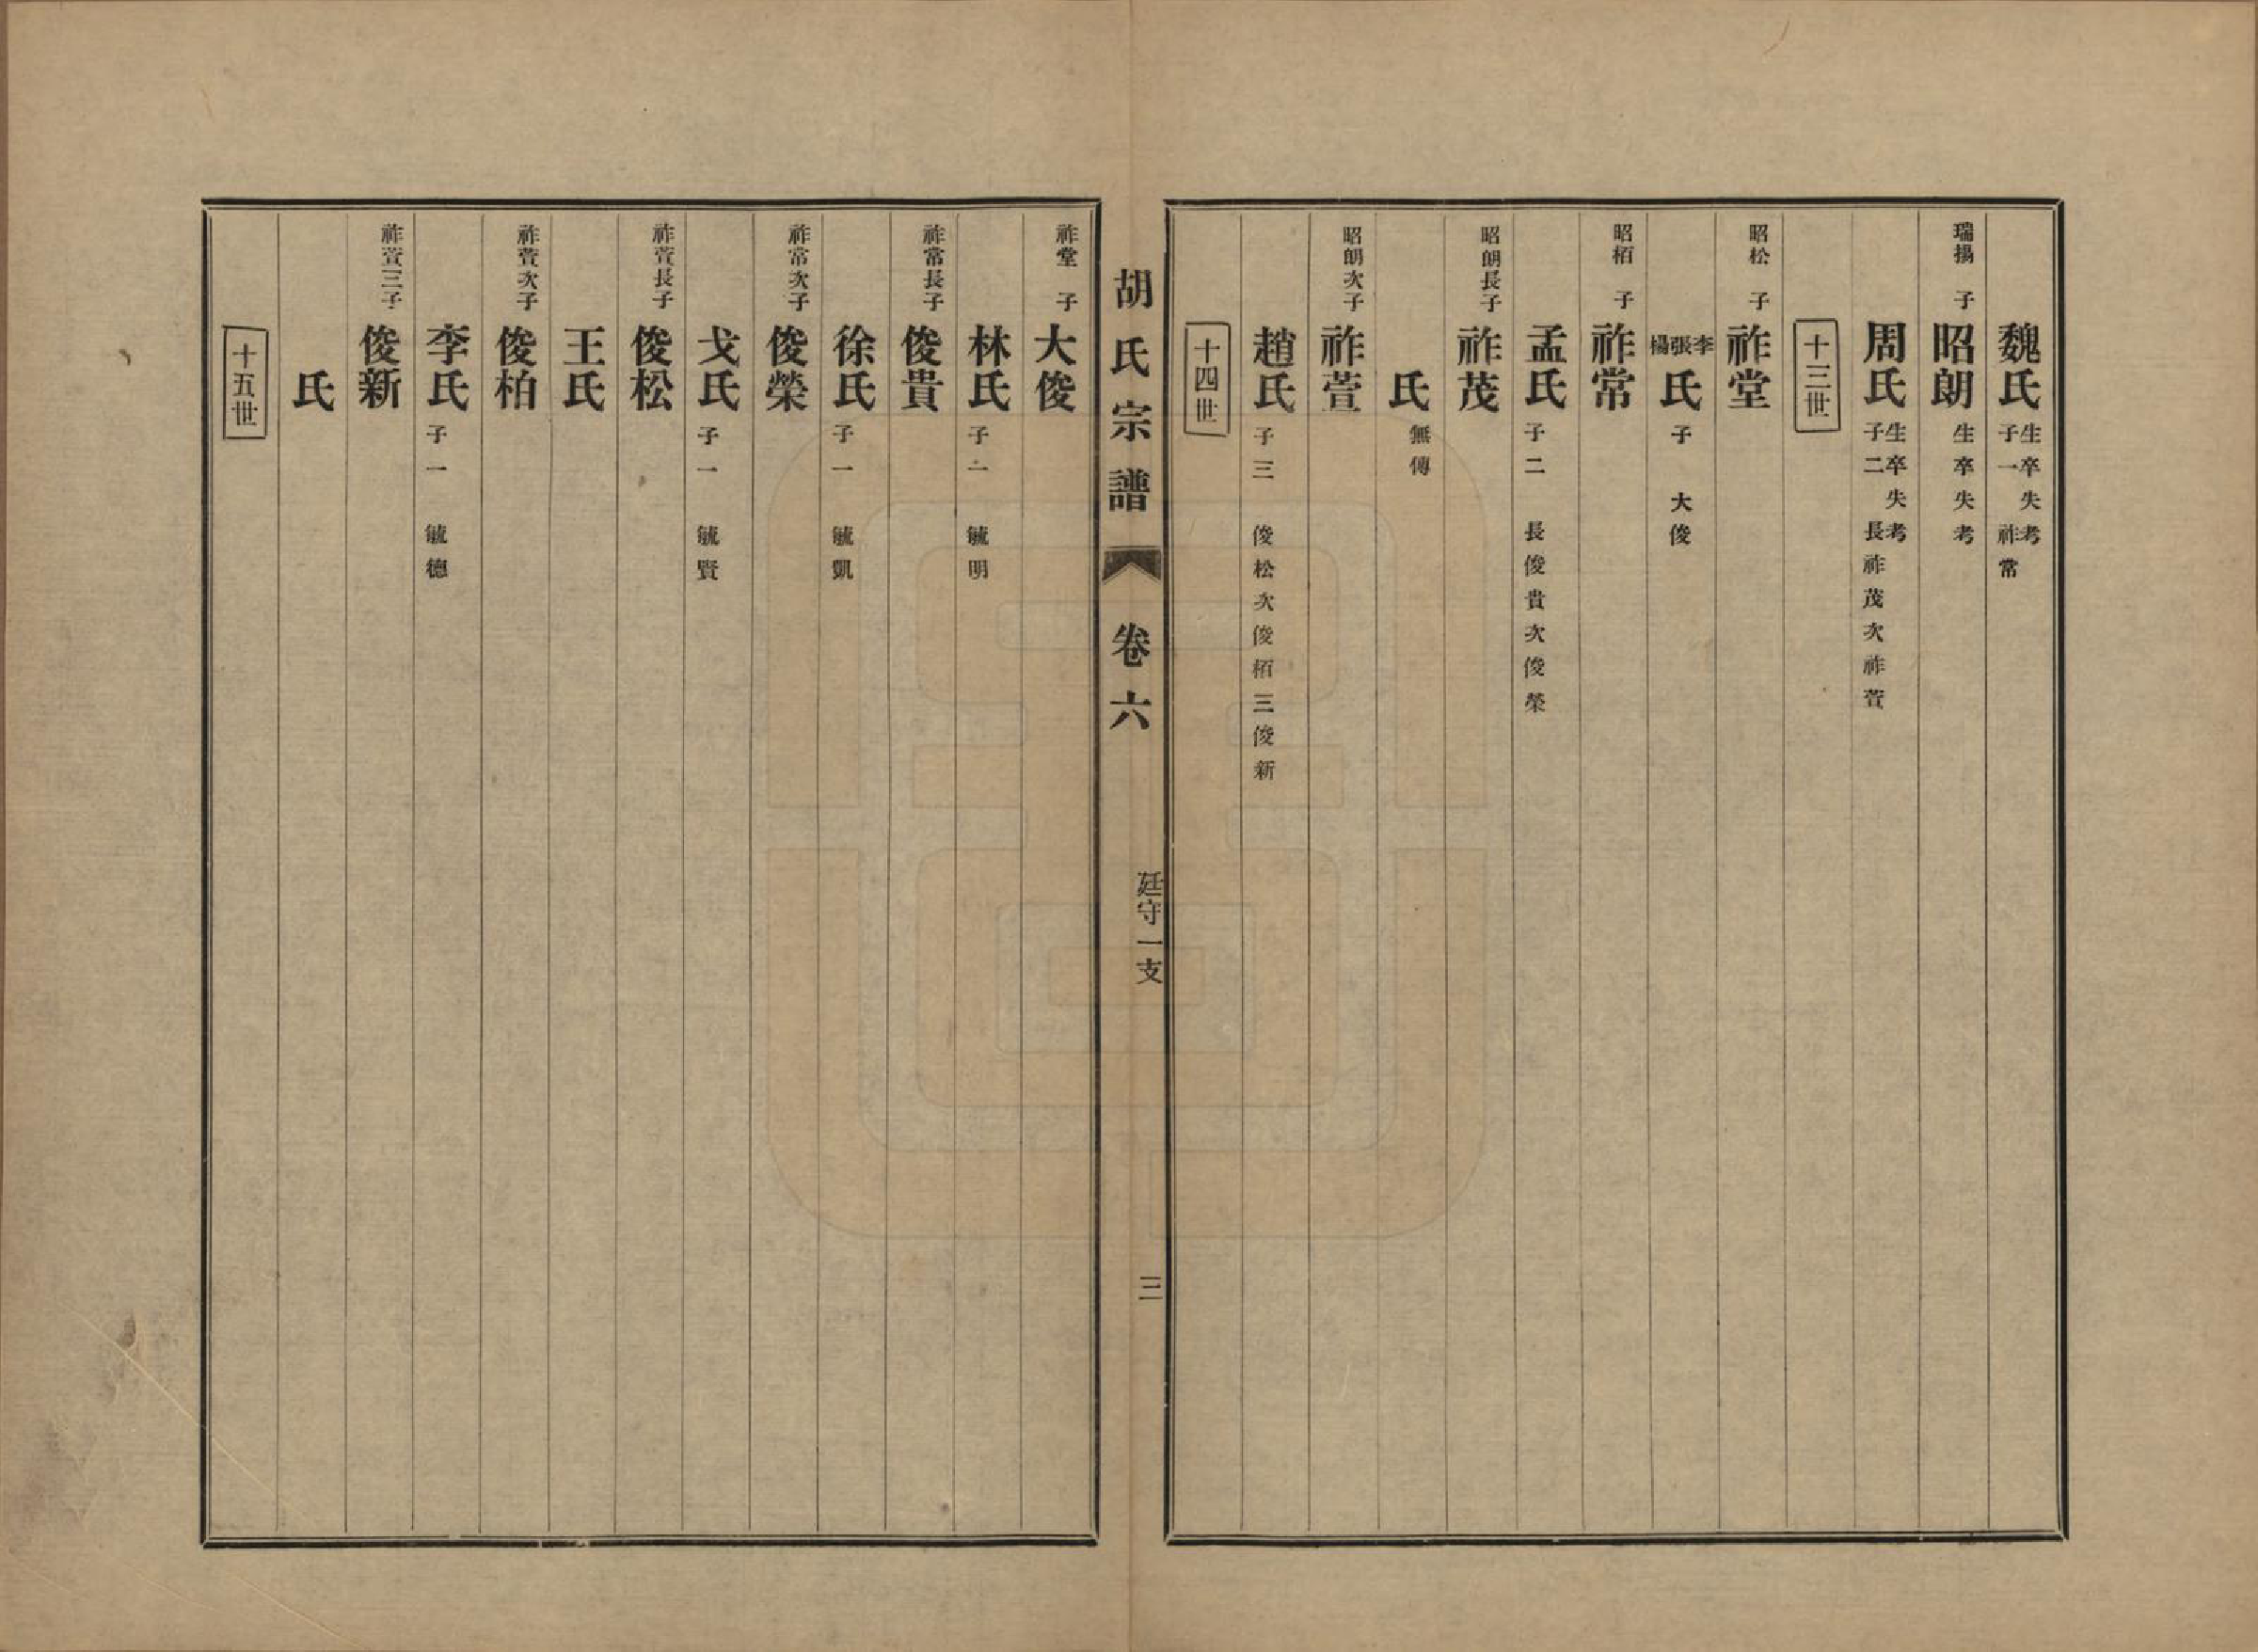 魏氏 生卒失考 子一 祚常
瑞揚 子 昭朗 生卒失考
周氏 生卒失考 子二 長祚茂次祚萱
十三世
昭松 子 祚堂
李張楊 氏 子 大俊
昭栢 子 祚常
孟氏 子二 長俊貴次俊榮
昭朗長子 祚茂
氏 無傳
昭朗次子 祚萱
趙氏 子三 俊松次俊栢三俊新
十四世
胡氏宗譜 卷六 廷守一支 三
祚堂 子 大俊
林氏 子一 毓明
祚常長子 俊貴
徐氏 子一 毓凱
祚常次子 俊榮
戈氏 子一 毓賢
祚萱長子 俊松
王氏
祚萱次子 俊柏
李氏 子一 毓德
祚萱三子 俊新
氏
十五世